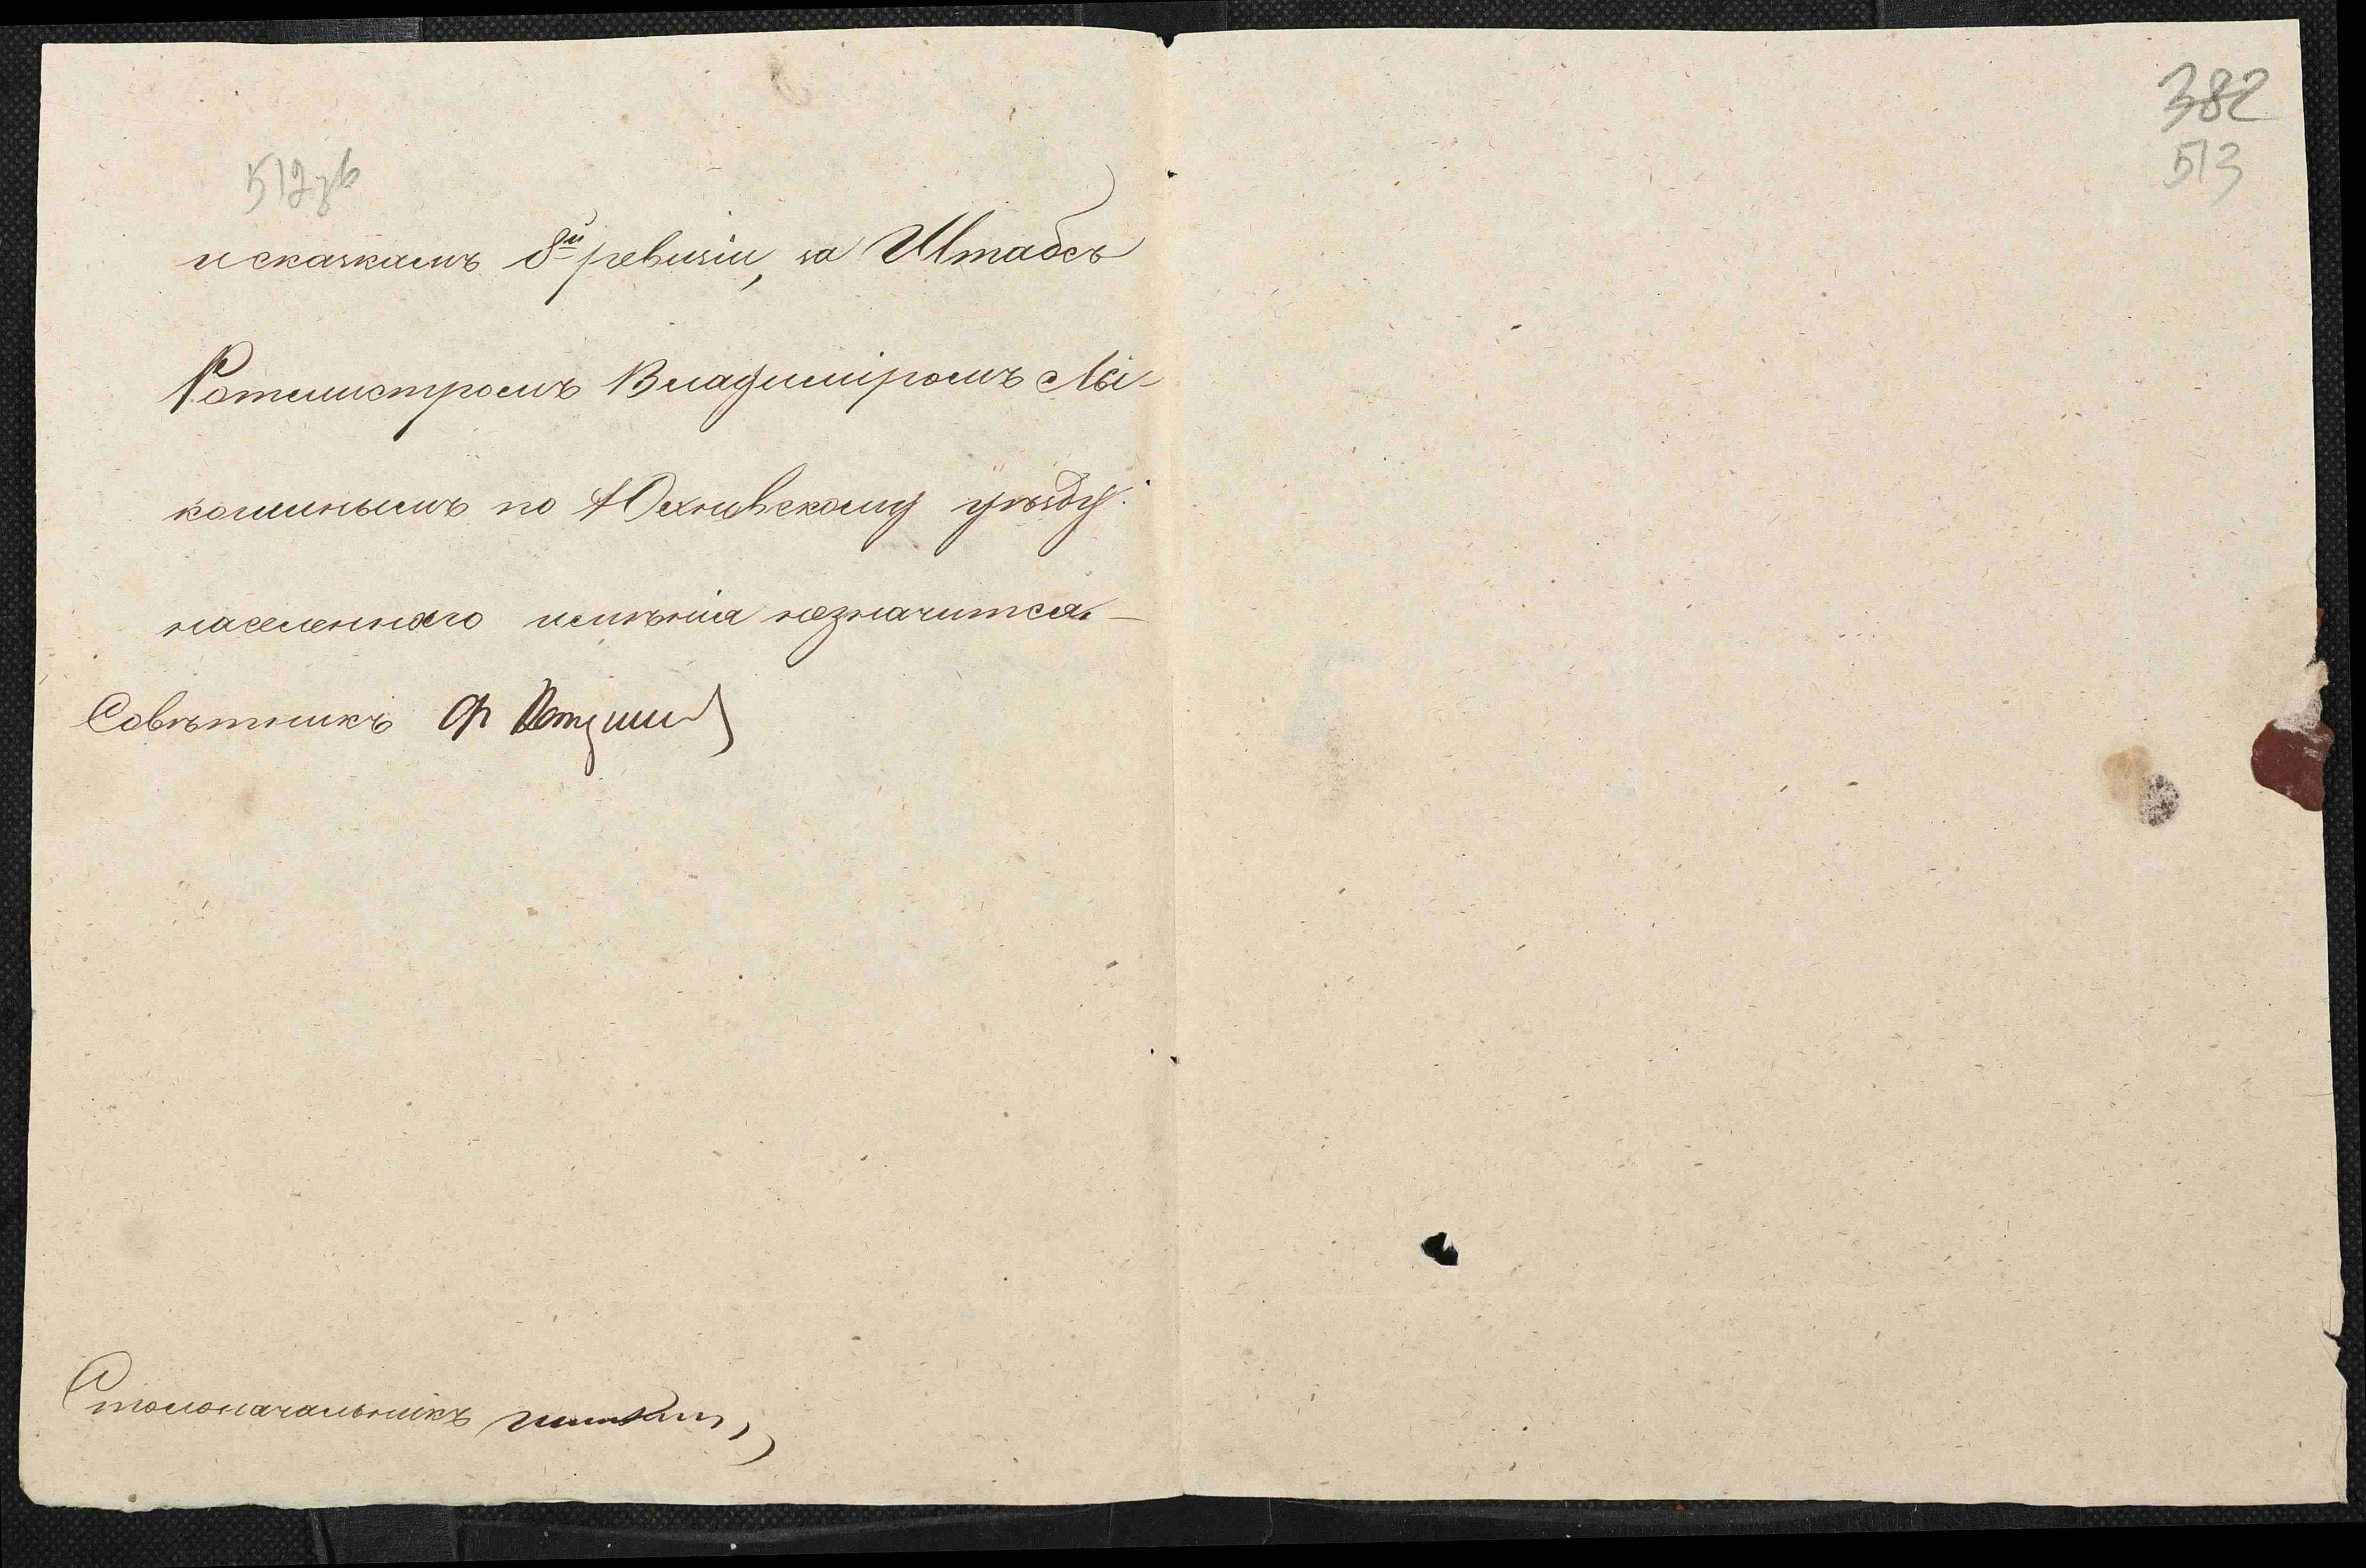 512об
и сказкамъ 8й ревизiи, за Штабсъ
Ротмистромъ Владимiромъ Лы-
кошинымъ по Юхновскому уѣзду
населеннаго имѣнiя незначится
Совѣтникъ Ф
Столоначальникъ
382
513